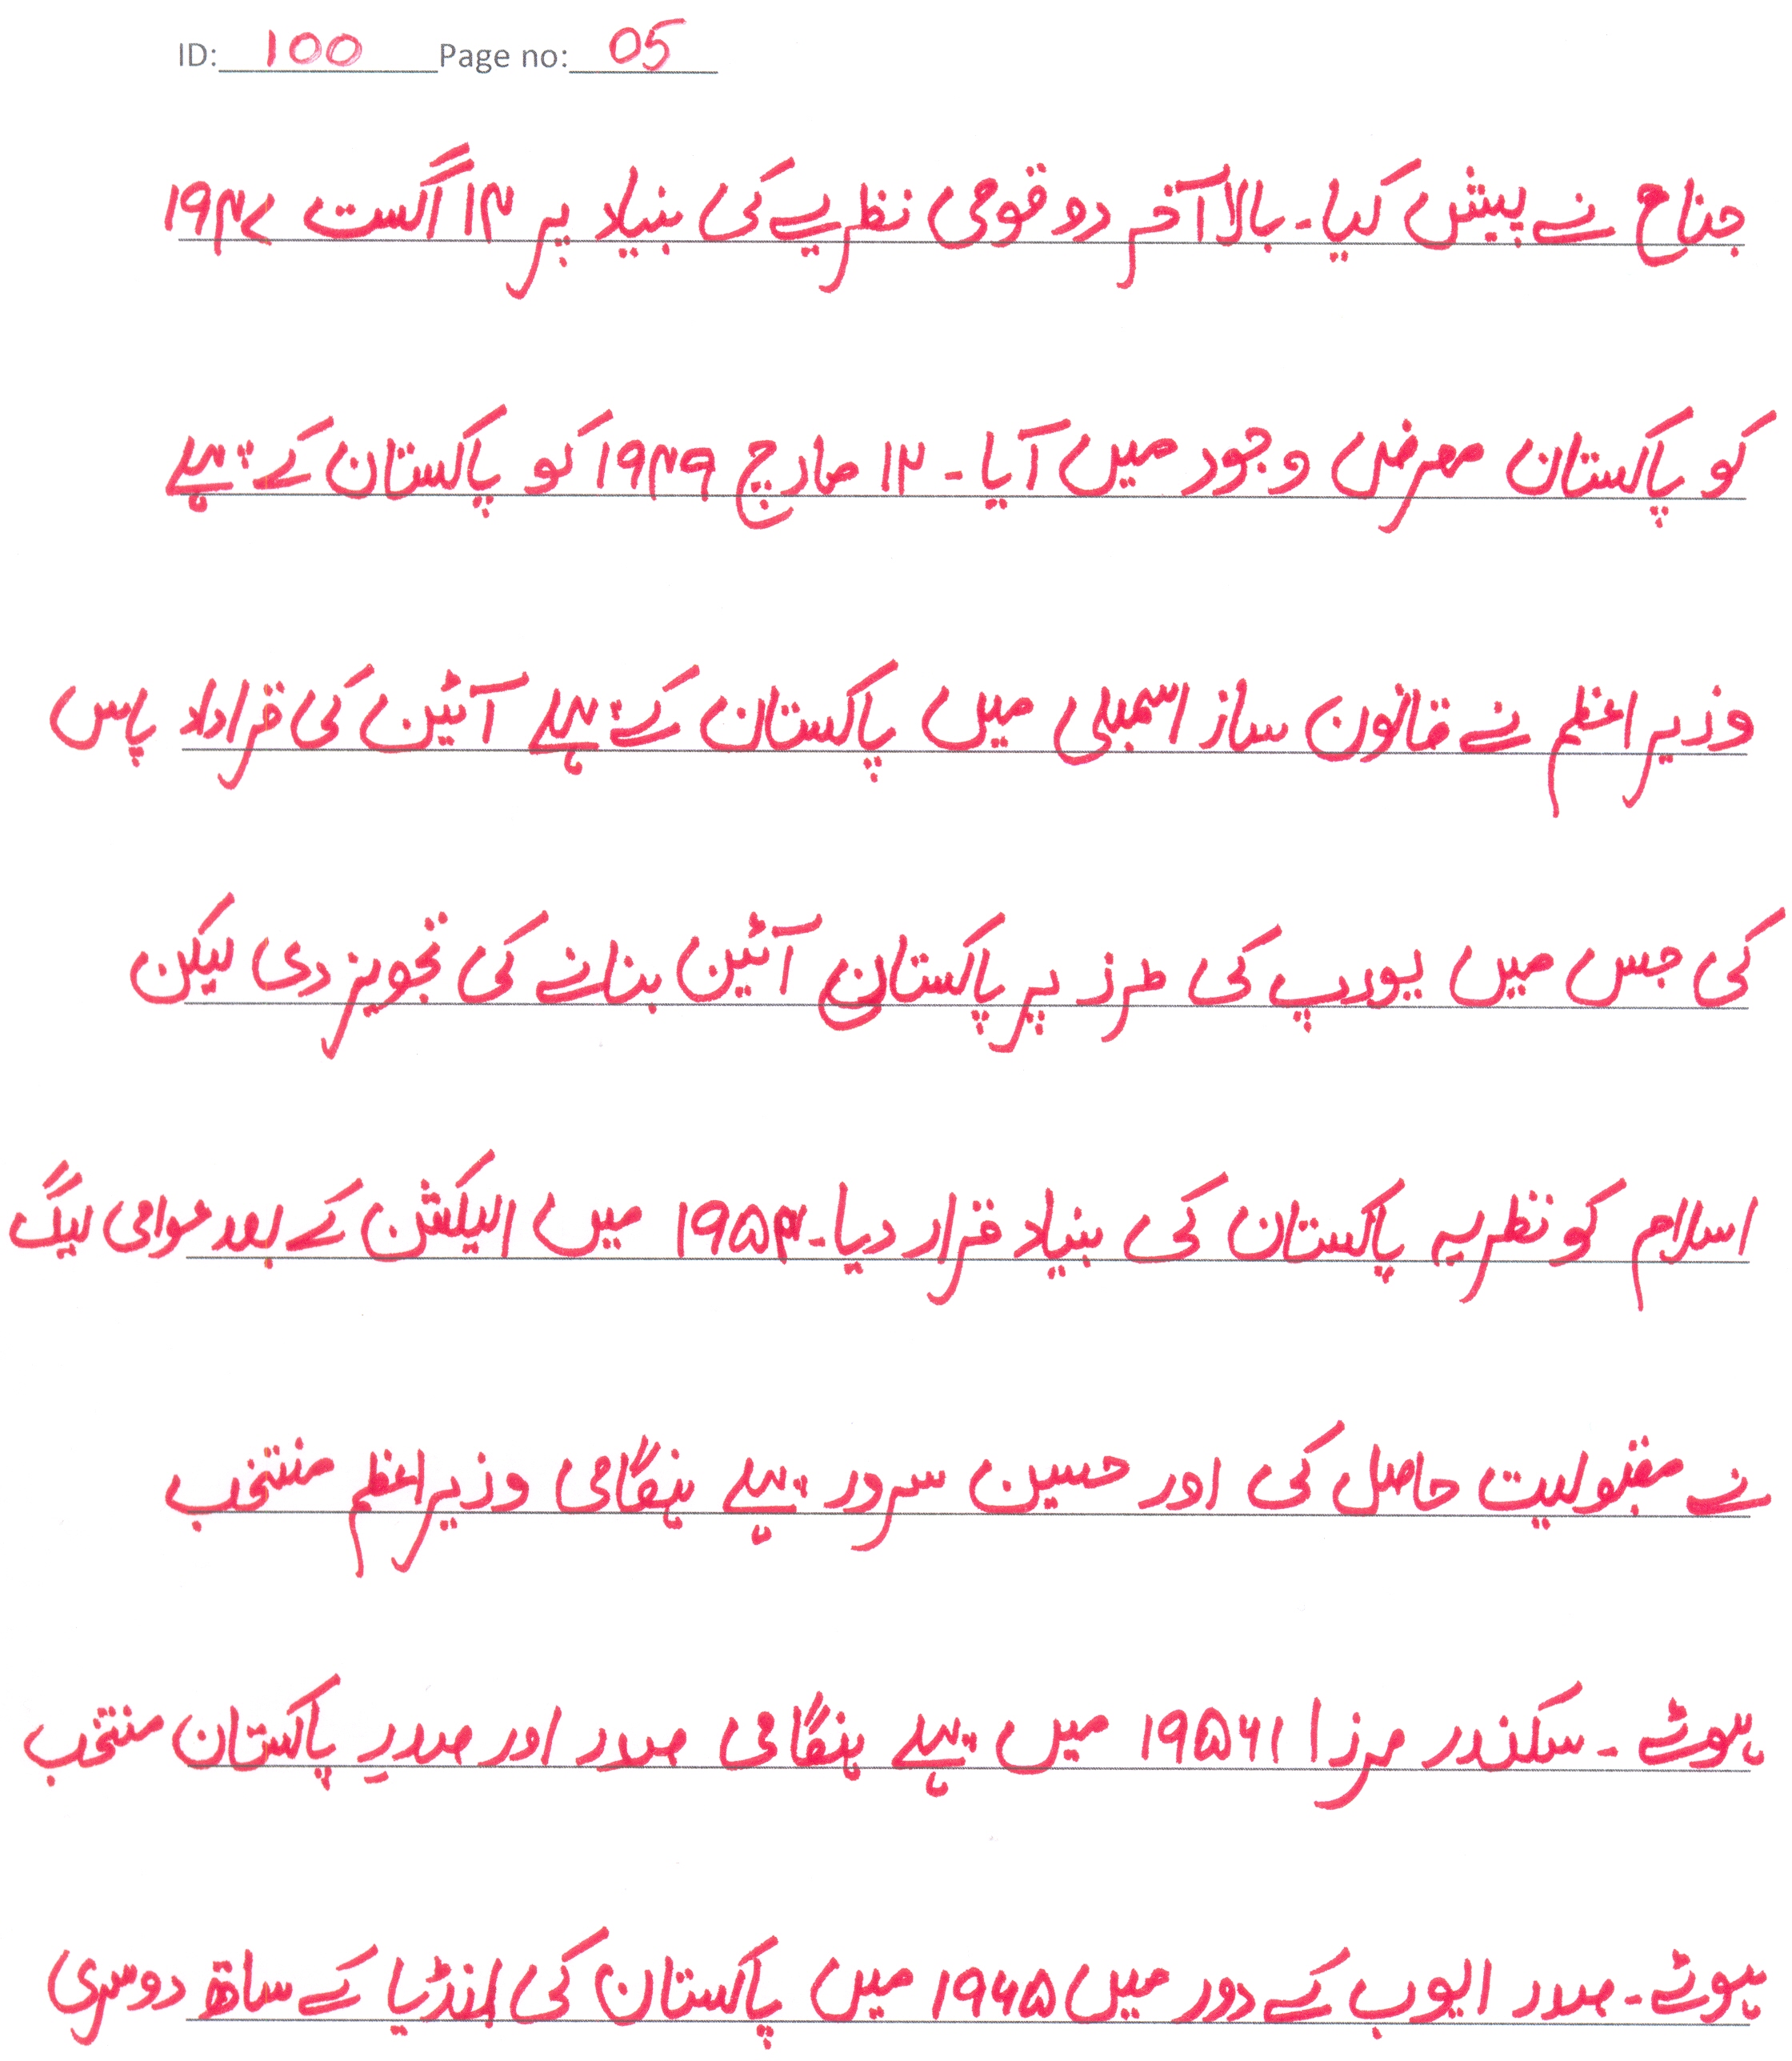 ID: 100 Page no: 05
جناح نے پیش کیا۔ بالا آخر دو قومی نظریے کی بنیاد پر ۱۴ اگست ۱۹۴۷
کو پاکستان معرض وجود میں آیا۔ ۱۲ مارچ ۱۹۴۹ کو پاکستان کے پہلے
وزیر اعظم نے قانون ساز اسمبلی میں پاکستان کے پہلے آئین کی قراداد پاس
کی جس میں یورپ کی طرز پر پاکستانی آئین بنانے کی تجویز دی لیکن
اسلام کو نظریہ پاکستان کی بنیاد قرار دیا۔ ۱۹۵۴ میں الیکشن کے بعد عوامی لیگ
نے مقبولیت حاصل کی اور حسین سرور پہلے ہنگامی وزیر اعظم منتخب
ہوئے۔ سکندر مرزا ۱۹۵۶ا میں پہلے ہنگامی صدر اور صدرِ پاکستان منتخب
ہوئے۔ صدر ایوب کے دور میں ۱۹۶۵ میں پاکستان کی انڈیا کے ساتھ دوسری